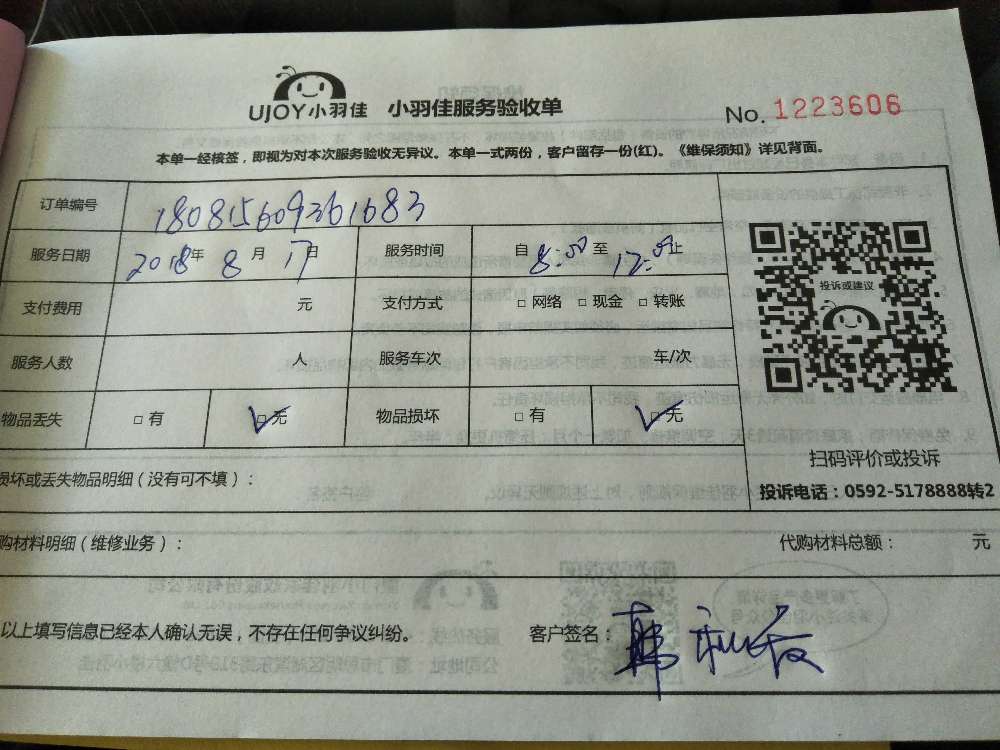 UJOY小羽佳 小羽佳服务验收单 No. 1223606
本单一经核签，即视为对本次服务验收无异议。本单一式两份，客户留存一份(红)。《维保须知》详见背面。
订单编号 180815609361683
服务日期 2018年 8月 17日 服务时间 自 8:00 至 12:00 止
支付费用 元 支付方式 □ 网络 □ 现金 □ 转账
投诉或建议
服务人数 人 服务车次 车/次
物品丢失 □ 有 □无 物品损坏 □ 有 □无
扫码评价或投诉
损坏或丢失物品明细（没有可不填）：
投诉电话：0592-5178888转2
购材料明细（维修业务）： 代购材料总额： 元
以上填写信息已经本人确认无误，不存在任何争议纠纷。 客户签名：韩